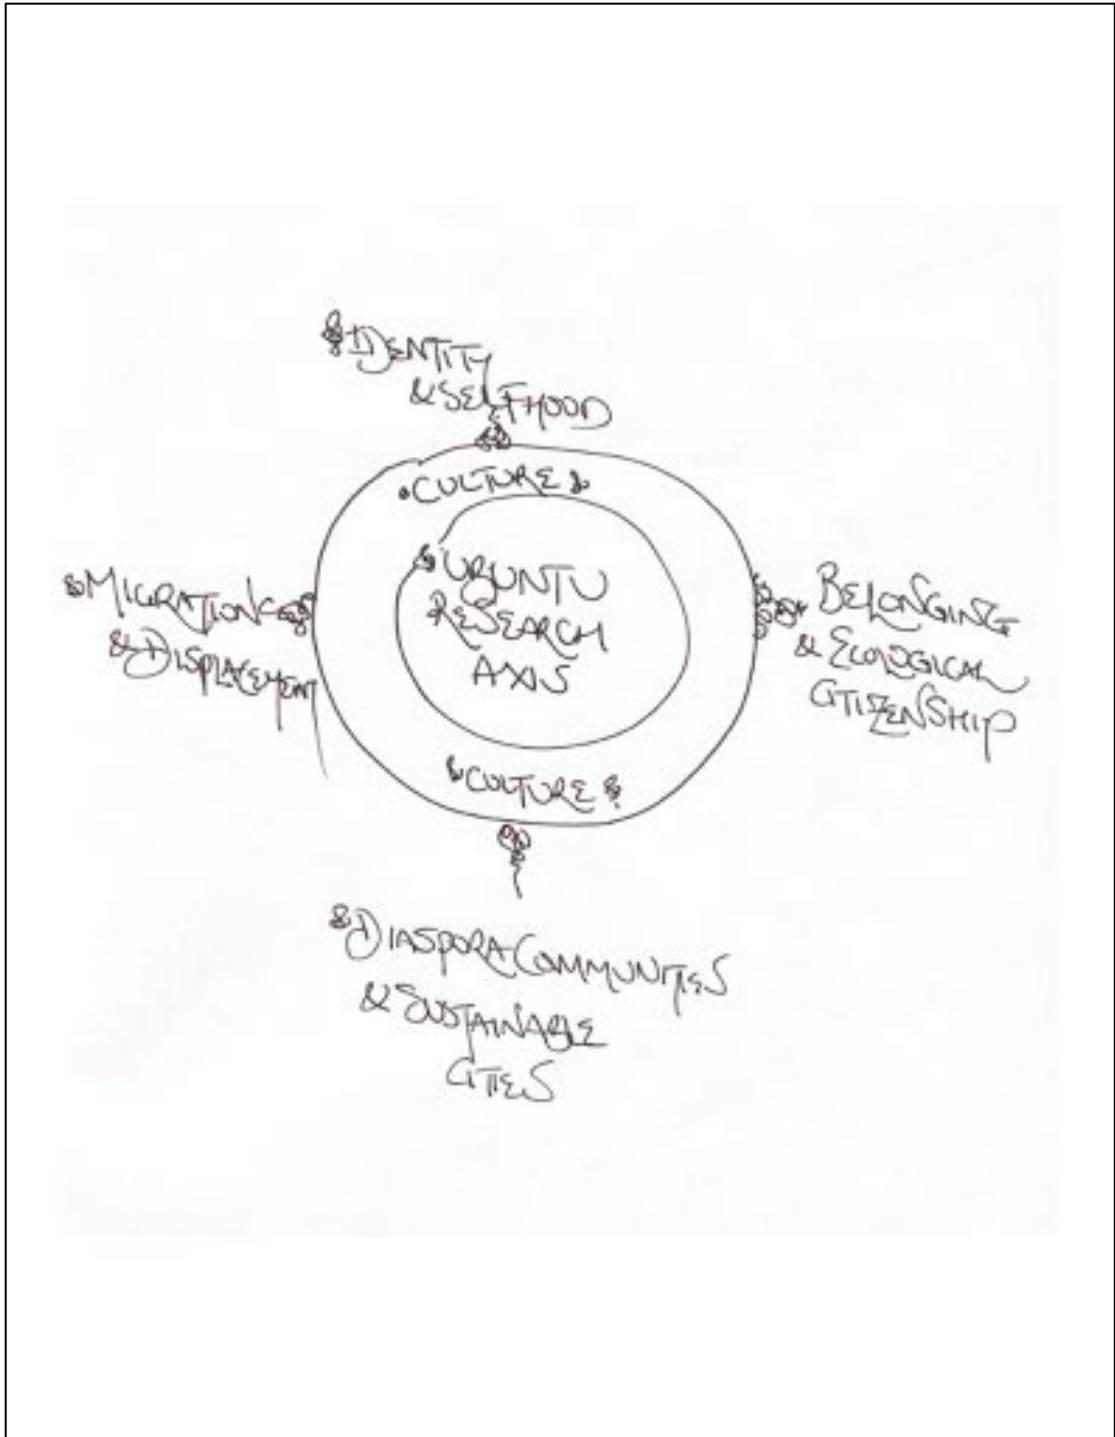 IDENTITY
& SELFHOOD
CULTURE
UBUNTU
RESEARCH
AXIS
MIGRATION
& DISPLACEMENT
BELONGING
& ECOLOGICAL
CITIZENSHIP
CULTURE
DIASPORA COMMUNITIES
& SUSTAINABLE
CITIES